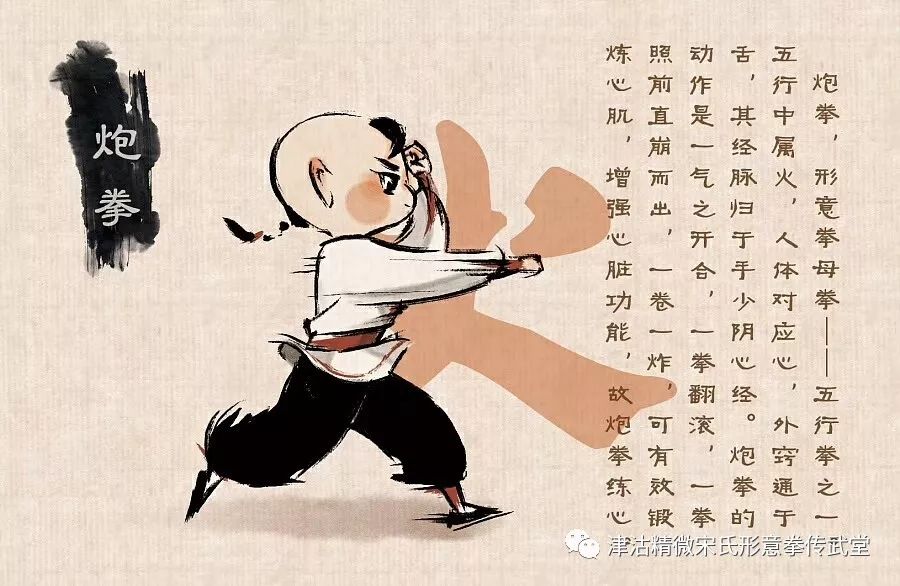 炮拳
炮拳，形意拳母拳——五行拳之一
五行中属火，人体对应心，外窍通于
舌，其经脉归于手少阴心经。炮拳的
动作是一气之开合，一拳翻滚，一拳
照前直崩而出，一卷一炸，可有效锻
炼心肌，增强心脏功能，故炮拳练心
津沽精微宋氏形意拳传武堂